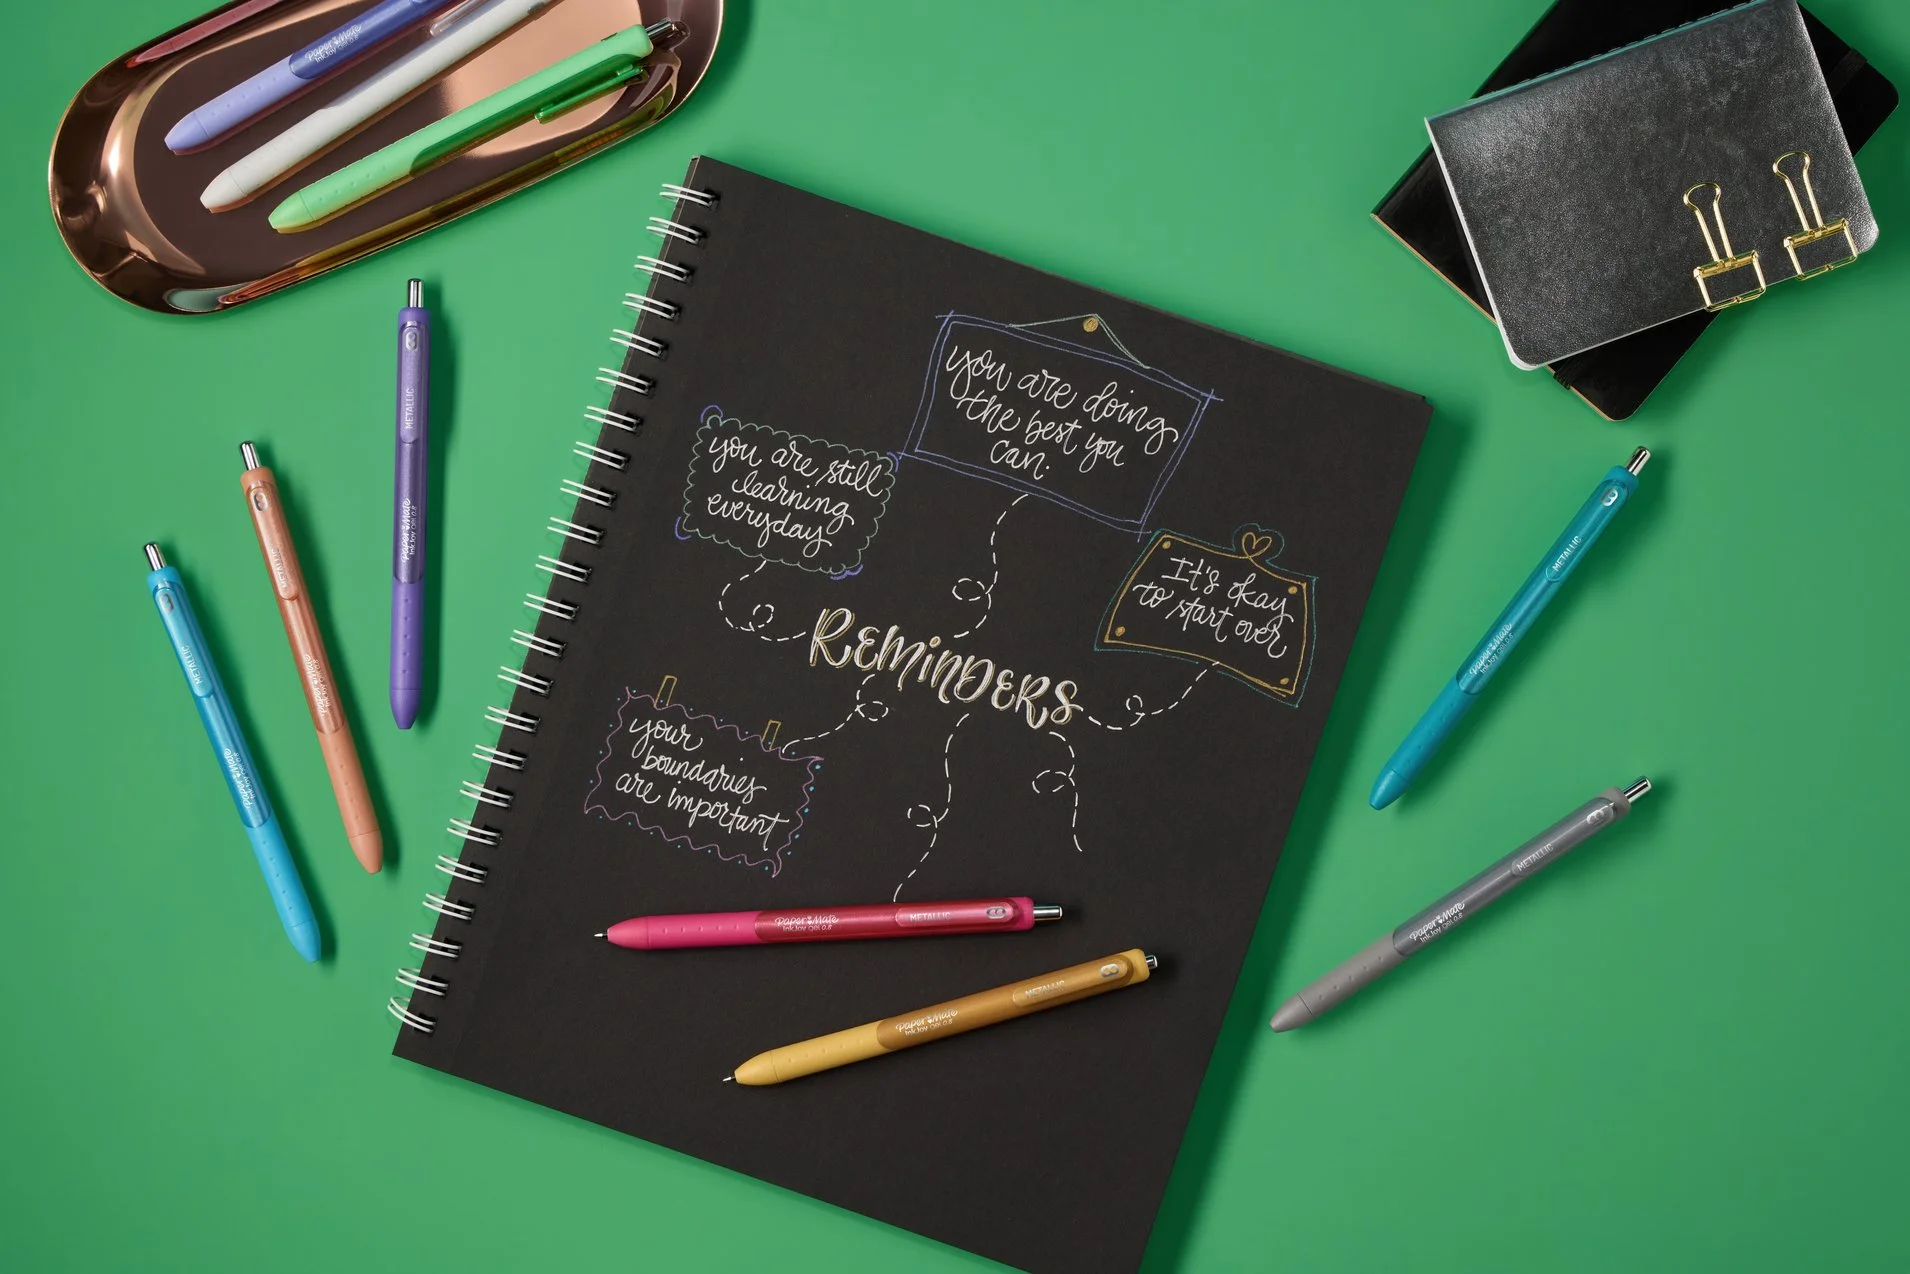 Paper Mate
InkJoy gel 0.8
you are doing
the best you
can.
you are still
learning
everyday
It's okay
to start over
REMINDERS
your
boundaries
are important
METALLIC
Paper Mate
InkJoy gel 0.8
METALLIC
Paper Mate
InkJoy gel 0.8
METALLIC
Paper Mate
InkJoy gel 0.8
METALLIC
Paper Mate
InkJoy gel 0.8
METALLIC
Paper Mate
InkJoy gel 0.8
Paper Mate
InkJoy gel 0.8
METALLIC
Paper Mate
InkJoy gel 0.8
METALLIC